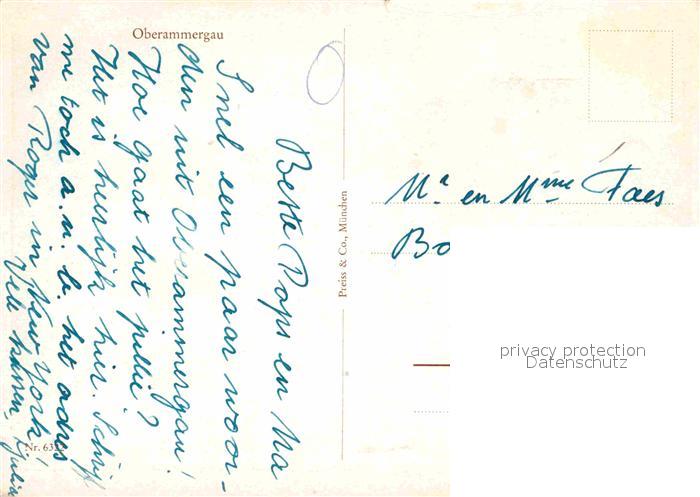 Oberammergau
Beste Pops en Ma
Snel een paar woor-
den uit Oberammergau!
Hoe gaat het jullie?
Het is heerlijk hier. Schrijf
me toch a.u.b. het adres
van Roger in New York!
Vele kussen,
Julia
Nr. 632
Preiss & Co., München
Mr. en Mme Faes
Bo
privacy protection
Datenschutz